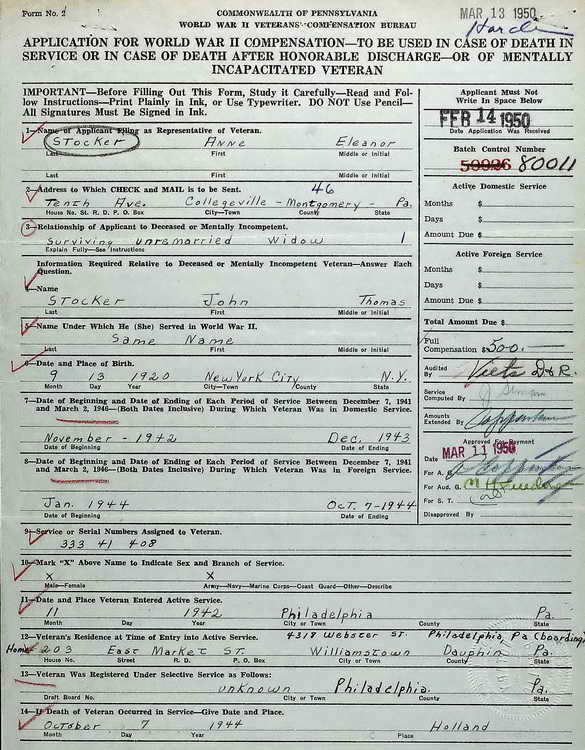 Form No. 2
COMMONWEALTH OF PENNSYLVANIA
MAR 13 1950
WORLD WAR II VETERANS' COMPENSATION BUREAU
APPLICATION FOR WORLD WAR II COMPENSATION—TO BE USED IN CASE OF DEATH IN
SERVICE OR IN CASE OF DEATH AFTER HONORABLE DISCHARGE—OR OF MENTALLY
INCAPACITATED VETERAN
IMPORTANT—Before Filling Out This Form, Study it Carefully—Read and Fol-
low Instructions—Print Plainly in Ink, or Use Typewriter. DO NOT Use Pencil—
All Signatures Must Be Signed in Ink.
1—Name of Applicant Filing as Representative of Veteran.
Stocker Anne Eleanor
Last First Middle or Initial
2—Address to Which CHECK and MAIL is to be Sent. 46
Tenth Ave. Collegeville - Montgomery - Pa.
House No. St. R. D. P. O. Box City—Town County State
3—Relationship of Applicant to Deceased or Mentally Incompetent.
Surviving unremarried Widow 1
Explain Fully—See Instructions
Information Required Relative to Deceased or Mentally Incompetent Veteran—Answer Each
Question.
4—Name
Stocker John Thomas
Last First Middle or Initial
5—Name Under Which He (She) Served in World War II.
Same Name
Last First Middle or Initial
6—Date and Place of Birth.
9 13 1920 New York City N.Y.
Month Day Year City—Town County State
7—Date of Beginning and Date of Ending of Each Period of Service Between December 7, 1941
and March 2, 1946—(Both Dates Inclusive) During Which Veteran Was in Domestic Service.
November - 1942 Dec. 1943
Date of Beginning Date of Ending
8—Date of Beginning and Date of Ending of Each Period of Service Between December 7, 1941
and March 2, 1946—(Both Dates Inclusive) During Which Veteran Was in Foreign Service.
Jan. 1944 Oct. 7-1944
Date of Beginning Date of Ending
9—Service or Serial Numbers Assigned to Veteran.
333 41 408
10—Mark "X" Above Name to Indicate Sex and Branch of Service.
X X
Male—Female Army—Navy—Marine Corps—Coast Guard—Other—Describe
11—Date and Place Veteran Entered Active Service.
11 1942 Philadelphia Pa.
Month Day Year City or Town County State
12—Veteran's Residence at Time of Entry into Active Service. 4318 Webster St. Philadelphia, Pa (boarding)
Home 203 East Market St. Williamstown Dauphin Pa.
House No. Street R. D. P. O. Box City or Town County State
13—Veteran Was Registered Under Selective Service as Follows:
unknown Philadelphia. Pa.
Draft Board No. City or Town County State
14—If Death of Veteran Occurred in Service—Give Date and Place.
October 7 1944 Holland
Month Day Year Place
Applicant Must Not
Write In Space Below
FEB 14 1950
Date Application Was Received
Batch Control Number
80011
Active Domestic Service
Months $
Days $
Amount Due $
Active Foreign Service
Months $
Days $
Amount Due $
Total Amount Due $
Full
Compensation $500.—
Audited
By
Service
Computed By
Amounts
Extended By
Approved For Payment
Date MAR 11 1950
For A. G.
For Aud. G.
For S. T.
Disapproved By